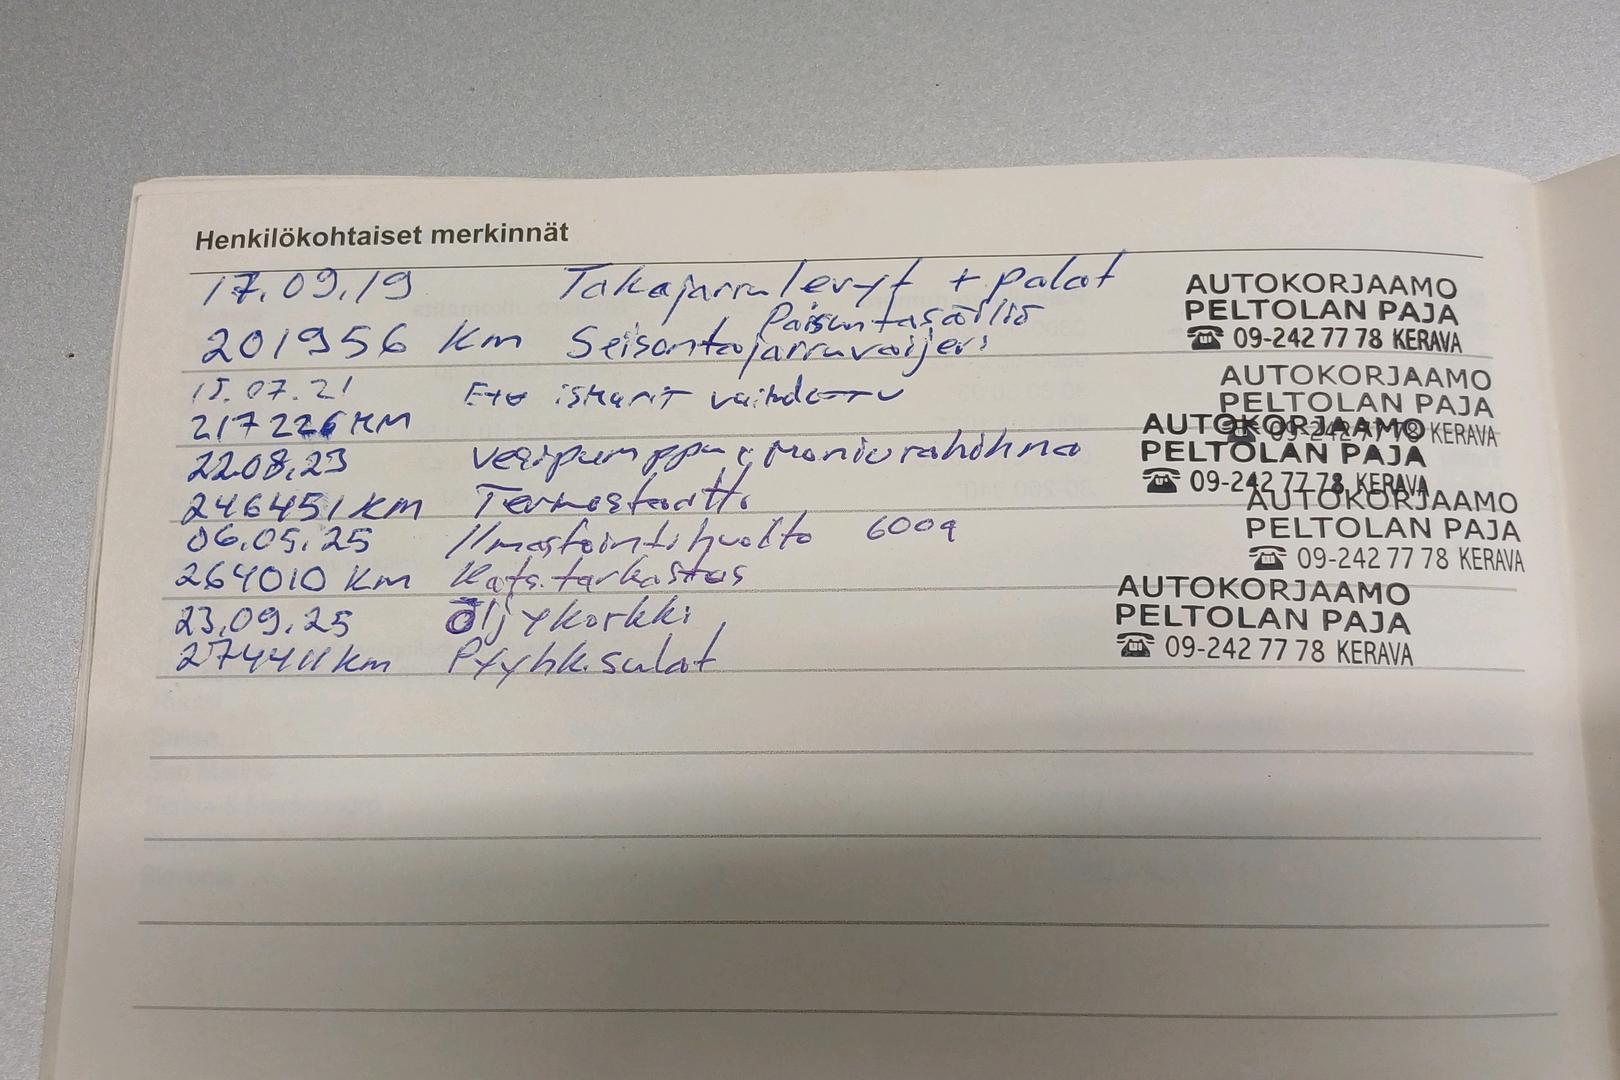 Henkilökohtaiset merkinnät
17.09.19 Takajarrulevyt + palat
Paisuntasäiliö
201956 Km Seisontajarruvaijeri
AUTOKORJAAMO
PELTOLAN PAJA
☎ 09-242 77 78 KERAVA
15.07.21 Etu iskarit vaihdettu
217226 KM
AUTOKORJAAMO
PELTOLAN PAJA
☎ 09-242 77 78 KERAVA
22.08.23 Vesipumppu, moniurahihna
246451 km Termostaatti
AUTOKORJAAMO
PELTOLAN PAJA
☎ 09-242 77 78 KERAVA
06.05.25 Ilmastointihuolto 600g
264010 Km Kats.tarkastus
AUTOKORJAAMO
PELTOLAN PAJA
☎ 09-242 77 78 KERAVA
23.09.25 Öljykorkki
274411 km Pyyhk.sulat
AUTOKORJAAMO
PELTOLAN PAJA
☎ 09-242 77 78 KERAVA